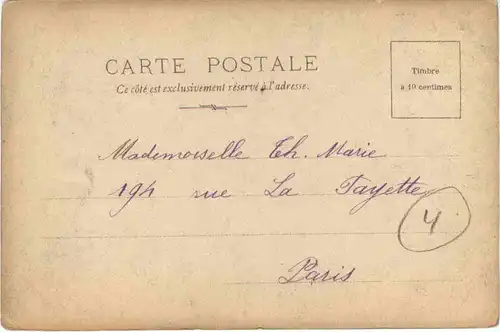 CARTE POSTALE
Ce côté est exclusivement réservé à l'adresse.
Timbre
à 10 centimes
Mademoiselle Th. Marie
194 rue La Fayette
4
Paris